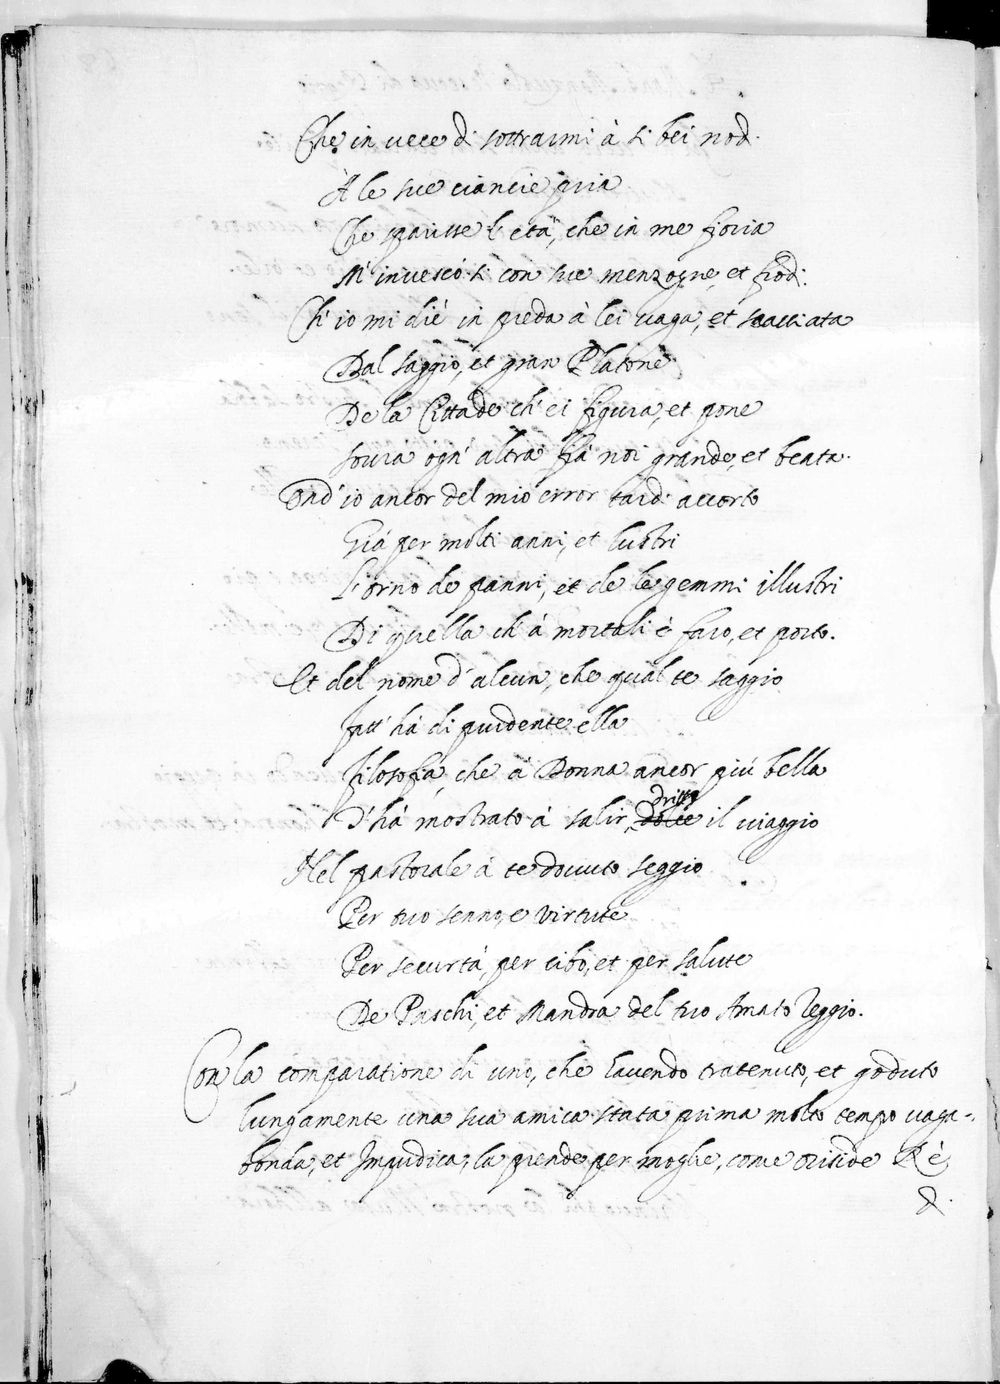 Che in uece di sottrarmi à si bei nodi
À le sue ciancie pria
Che sparisse l'età, che in me fioria
M'inuescò si con sue menzogne, et frodi.
Ch'io mi diè in preda à lei uaga, et scacciata
Dal saggio, et gran Platone
De la Cittade ch'ei figura, et pone
Soura ogn'altra frà noi grande, et beata.
Ond'io ancor del mio error tardi accorto
Già per molti anni, et lustri
L'orno de panni, et de le gemmi illustri
Di quella ch'à mortali è faro, et porto.
Et del nome d'alcun, che qual te saggio
Fatt'hà di prudente ella
Filosofia, che à Donna ancor più bella
T'hà mostrato à salir, dolce dritto il uiaggio
Nel pastorale à te douuto seggio
Per tuo senno, e virtute
Per securtà, per cibo, et per salute
De Paschi, et Mandra del tuo Amato Reggio.
Con la comparatione di uno, che hauendo tratenuto, et goduto
lungamente una sua amica stata prima molto tempo uaga-
bonda, et Impudica, la prende per moglie, come